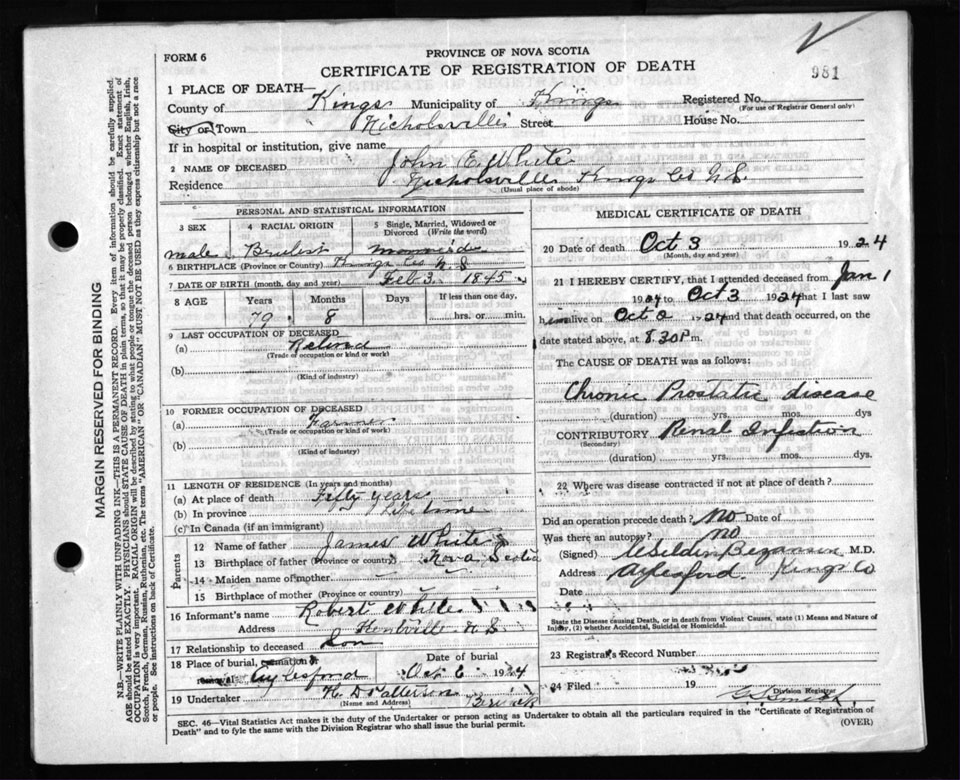 FORM 6
PROVINCE OF NOVA SCOTIA
CERTIFICATE OF REGISTRATION OF DEATH
981
1 PLACE OF DEATH—
County of Kings Municipality of Kings Registered No.
(For use of Registrar General only)
City or Town Nicholsville Street House No.
If in hospital or institution, give name
2 NAME OF DECEASED John E. White
Residence Nicholsville Kings Co N.S.
(Usual place of abode)
PERSONAL AND STATISTICAL INFORMATION
3 SEX
4 RACIAL ORIGIN
5 Single, Married, Widowed or Divorced (Write the word)
male
6 BIRTHPLACE (Province or Country) Kings Co N S
7 DATE OF BIRTH (month, day and year) Feb 3 1845
8 AGE Years Months Days If less than one day,
79 8 hrs. or min.
9 LAST OCCUPATION OF DECEASED
(a) Retired
(Trade or occupation or kind or work)
(b)
(Kind of industry)
10 FORMER OCCUPATION OF DECEASED
(a) Farmer
(Trade or occupation or kind or work)
(b)
(Kind of industry)
11 LENGTH OF RESIDENCE (In years and months)
(a) At place of death Fifty years
(b) In province Life time
(c) In Canada (if an immigrant)
Parents
12 Name of father James White
13 Birthplace of father (Province or country) Nova Scotia
14 Maiden name of mother
15 Birthplace of mother (Province or country)
16 Informant's name Robert White
Address Kentville N S
17 Relationship to deceased Son
18 Place of burial, cremation or removal Aylesford
Date of burial Oct 6 1924
19 Undertaker H. D. Patterson Berwick
(Name and Address)
MEDICAL CERTIFICATE OF DEATH
20 Date of death Oct 3 1924
(Month, day and year)
21 I HEREBY CERTIFY, that I attended deceased from Jan 1
1924 to Oct 3 1924 that I last saw
him alive on Oct 2 1924 and that death occurred, on
date stated above, at 8.30 P m.
The CAUSE OF DEATH was as follows:
Chronic Prostatic disease
(duration) yrs. mos. dys
CONTRIBUTORY Renal Infection
(Secondary)
(duration) yrs. mos. dys.
22 Where was disease contracted if not at place of death?
Did an operation precede death? No Date of
Was there an autopsy? no
(Signed) M.D.
Address Aylesford Kings Co
Date 19
State the Disease causing Death, or in death from Violent Causes, state (1) Means and Nature of Injury, (2) whether Accidental, Suicidal or Homicidal.
23 Registrar's Record Number
24 Filed 19
Division Registrar
SEC. 46—Vital Statistics Act makes it the duty of the Undertaker or person acting as Undertaker to obtain all the particulars required in the "Certificate of Registration of
Death" and to fyle the same with the Division Registrar who shall issue the burial permit.
(OVER)
MARGIN RESERVED FOR BINDING
N.B.—WRITE PLAINLY WITH UNFADING INK—THIS IS A PERMANENT RECORD. Every item of information should be carefully supplied.
AGE should be stated EXACTLY. PHYSICIANS should STATE CAUSE OF DEATH in plain terms, so that it may be properly classified. Exact statement of
OCCUPATION is very important. RACIAL ORIGIN will be described by stating to what people or tongue the deceased person belonged whether English, Irish,
Scotch, French, German, Russian, Ruthenian, etc. The terms "AMERICAN" OR "CANADIAN" MUST NOT BE USED as they express citizenship but not a race
or people. See instructions on back of Certificate.